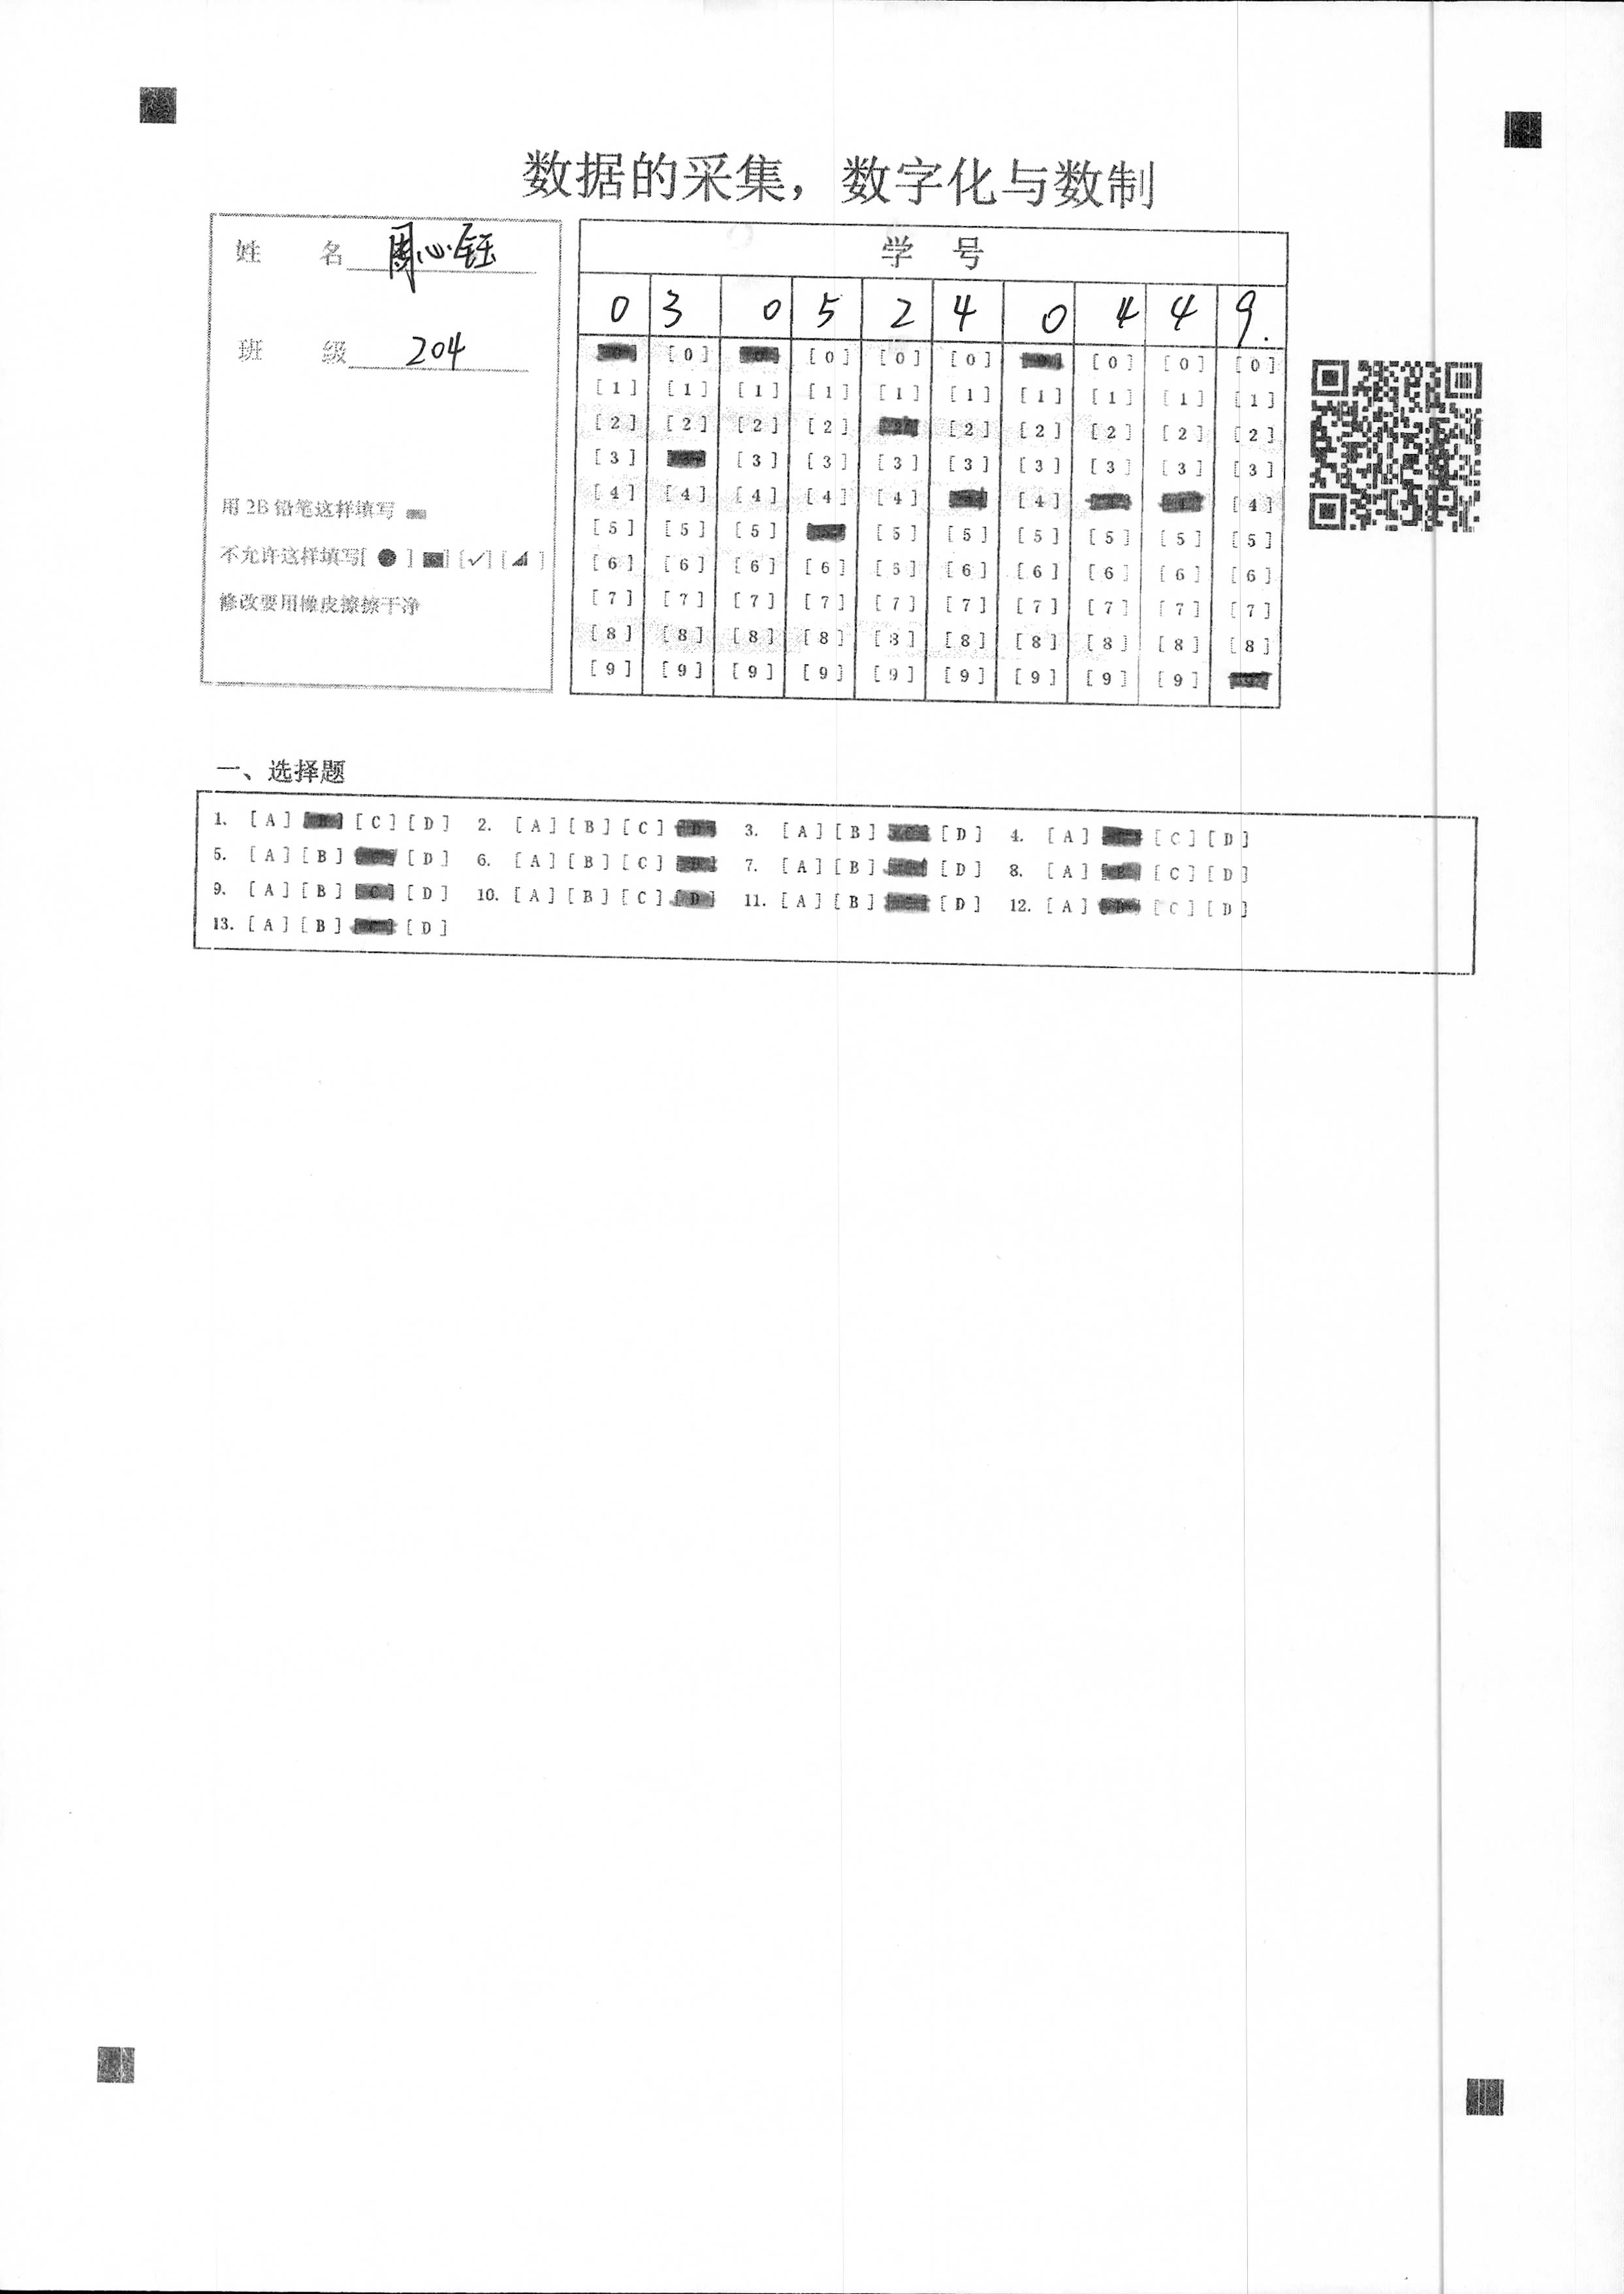 数据的采集，数字化与数制
姓 名 周心钰
班 级 204
用 2B 铅笔这样填写
不允许这样填写[ ● ] [■] [✓] [◢]
修改要用橡皮擦擦干净
学 号
0 3 0 5 2 4 0 4 4 9.
[0] [0] [0] [0] [0] [0] [0]
[1] [1] [1] [1] [1] [1] [1] [1] [1] [1]
[2] [2] [2] [2] [2] [2] [2] [2] [2]
[3] [3] [3] [3] [3] [3] [3] [3] [3]
[4] [4] [4] [4] [4] [4] [4]
[5] [5] [5] [5] [5] [5] [5] [5] [5]
[6] [6] [6] [6] [6] [6] [6] [6] [6] [6]
[7] [7] [7] [7] [7] [7] [7] [7] [7] [7]
[8] [8] [8] [8] [8] [8] [8] [8] [8] [8]
[9] [9] [9] [9] [9] [9] [9] [9] [9]
一、选择题
1. [A] [B] [C] [D] 2. [A] [B] [C] [D] 3. [A] [B] [C] [D] 4. [A] [B] [C] [D]
5. [A] [B] [C] [D] 6. [A] [B] [C] [D] 7. [A] [B] [C] [D] 8. [A] [B] [C] [D]
9. [A] [B] [C] [D] 10. [A] [B] [C] [D] 11. [A] [B] [C] [D] 12. [A] [B] [C] [D]
13. [A] [B] [C] [D]